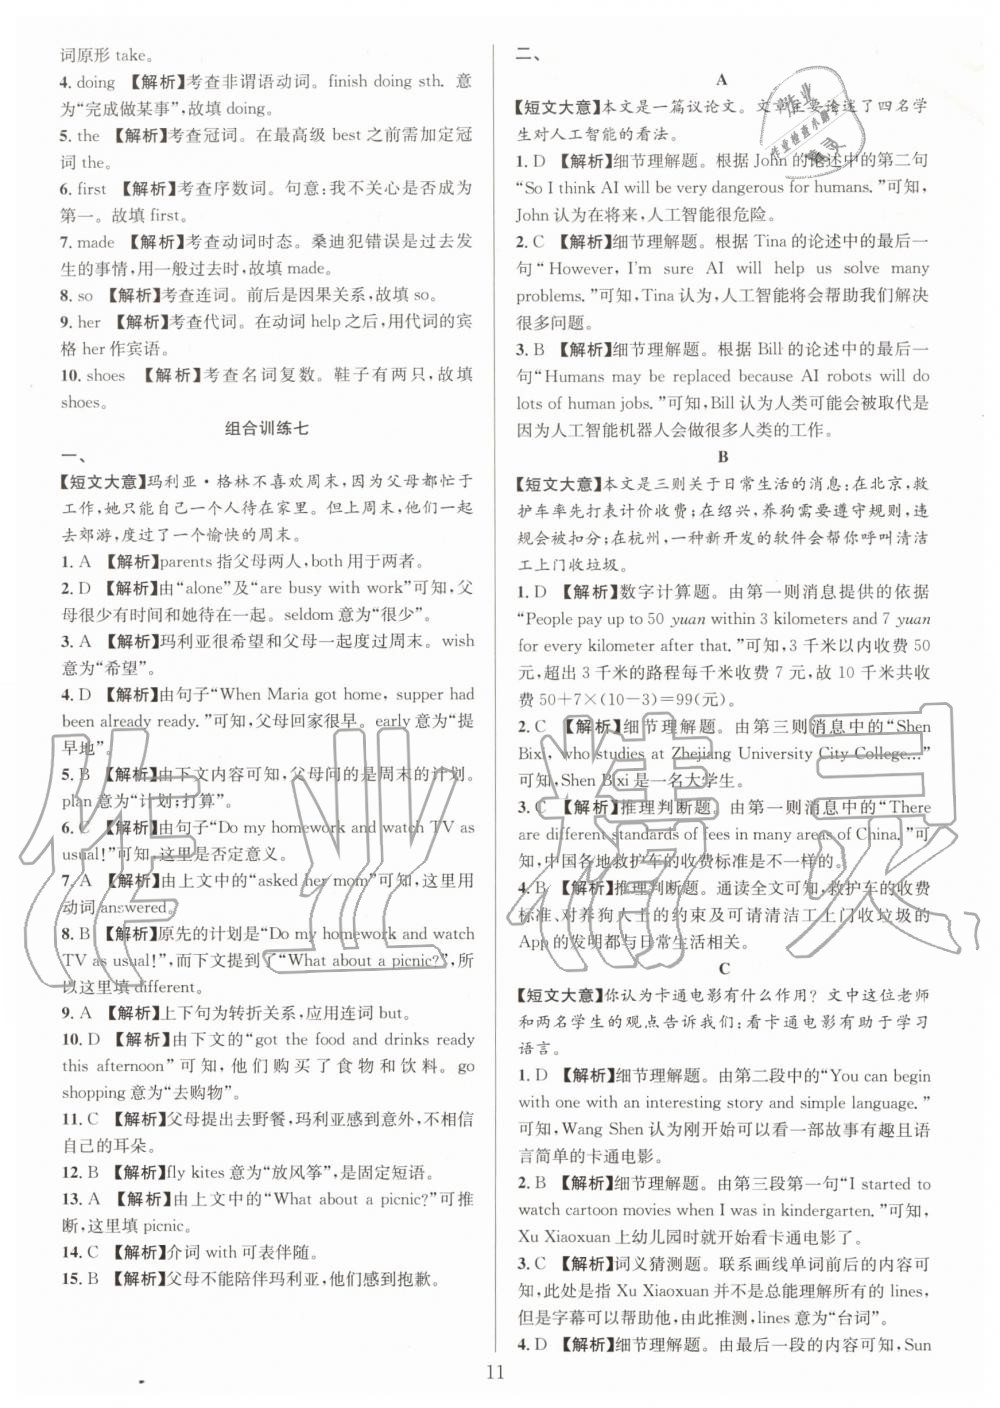 词原形 take。
4. doing 【解析】考查非谓语动词。finish doing sth. 意
为“完成做某事”,故填 doing。
5. the 【解析】考查冠词。在最高级 best 之前需加定冠
词 the。
6. first 【解析】考查序数词。句意:我不关心是否成为
第一。故填 first。
7. made 【解析】考查动词时态。桑迪犯错误是过去发
生的事情,用一般过去时,故填 made。
8. so 【解析】考查连词。前后是因果关系,故填 so。
9. her 【解析】考查代词。在动词 help 之后,用代词的宾
格 her 作宾语。
10. shoes 【解析】考查名词复数。鞋子有两只,故填
shoes。
组合训练七
一、
【短文大意】玛利亚·格林不喜欢周末,因为父母都忙于
工作,她只能自己一个人待在家里。但上周末,他们一起
去郊游,度过了一个愉快的周末。
1. A 【解析】parents 指父母两人,both 用于两者。
2. D 【解析】由“alone”及“are busy with work”可知,父
母很少有时间和她待在一起。seldom 意为“很少”。
3. A 【解析】玛利亚很希望和父母一起度过周末。wish
意为“希望”。
4. D 【解析】由句子“When Maria got home, supper had
been already ready.”可知,父母回家很早。early 意为“提
早地”。
5. B 【解析】由下文内容可知,父母问的是周末的计划。
plan 意为“计划;打算”。
6. C 【解析】由句子“Do my homework and watch TV as
usual!”可知,这里是否定意义。
7. A 【解析】由上文中的“asked her mom”可知,这里用
动词 answered。
8. B 【解析】原先的计划是“Do my homework and watch
TV as usual!”,而下文提到了“What about a picnic?”,所
以这里填 different。
9. A 【解析】上下句为转折关系,应用连词 but。
10. D 【解析】由下文的“got the food and drinks ready
this afternoon”可知,他们购买了食物和饮料。go
shopping 意为“去购物”。
11. C 【解析】父母提出去野餐,玛利亚感到意外,不相信
自己的耳朵。
12. B 【解析】fly kites 意为“放风筝”,是固定短语。
13. A 【解析】由上文中的“What about a picnic?”可推
断,这里填 picnic。
14. C 【解析】介词 with 可表伴随。
15. B 【解析】父母不能陪伴玛利亚,他们感到抱歉。
二、
A
【短文大意】本文是一篇议论文。文章主要论述了四名学
生对人工智能的看法。
1. D 【解析】细节理解题。根据 John 的论述中的第二句
“So I think AI will be very dangerous for humans.”可知,
John 认为在将来,人工智能很危险。
2. C 【解析】细节理解题。根据 Tina 的论述中的最后一
句“However, I'm sure AI will help us solve many
problems.”可知,Tina 认为,人工智能将会帮助我们解决
很多问题。
3. B 【解析】细节理解题。根据 Bill 的论述中的最后一
句“Humans may be replaced because AI robots will do
lots of human jobs.”可知,Bill 认为人类可能会被取代是
因为人工智能机器人会做很多人类的工作。
B
【短文大意】本文是三则关于日常生活的消息:在北京,救
护车率先打表计价收费;在绍兴,养狗需要遵守规则,违
规会受到处罚;在杭州,一种新开发的软件会帮你呼叫清洁
工上门收垃圾。
1. D 【解析】数字计算题。由第一则消息提供的依据
“People pay up to 50 yuan within 3 kilometers and 7 yuan
for every kilometer after that.”可知,3 千米以内收费 50
元,超出 3 千米的路程每千米收费 7 元,故 10 千米共收
费 50+7×(10-3)=99(元)。
2. C 【解析】细节理解题。由第三则消息中的“Shen
Bixi, who studies at Zhejiang University City College...”
可知,Shen Bixi 是一名大学生。
3. C 【解析】推理判断题。由第一则消息中的“There
are different standards of fees in many areas of China.”可
知,中国各地救护车的收费标准是不一样的。
4. B 【解析】推理判断题。通读全文可知,救护车的收费
标准、对养狗人士的约束及可请清洁工上门收垃圾的
App 的发明都与日常生活相关。
C
【短文大意】你认为卡通电影有什么作用?文中这位老师
和两名学生的观点告诉我们:看卡通电影有助于学习
语言。
1. D 【解析】细节理解题。由第二段中的“You can begin
with one with an interesting story and simple language.”
可知,Wang Shen 认为刚开始可以看一部故事有趣且语
言简单的卡通电影。
2. B 【解析】细节理解题。由第三段第一句“I started to
watch cartoon movies when I was in kindergarten.”可知,
Xu Xiaoxuan 上幼儿园时就开始看卡通电影了。
3. C 【解析】词义猜测题。联系画线单词前后的内容可
知,此处是指 Xu Xiaoxuan 并不是总能理解所有的 lines,
但是字幕可以帮助他,由此推测,lines 意为“台词”。
4. D 【解析】细节理解题。由最后一段的内容可知,Sun
11
作业精灵